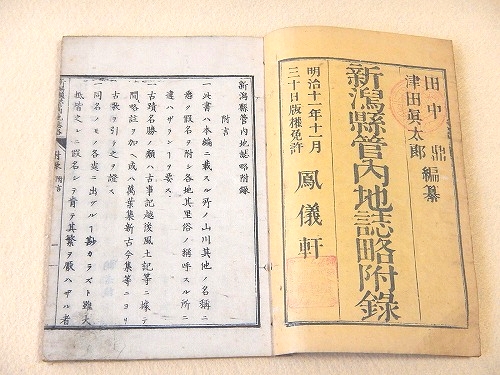 田中 鼎
津田眞太郎 編纂
新潟縣管内地誌略附錄
明治十一年十一月
三十日版權免許
鳳儀軒
新潟縣管内地誌略附錄
附言
一此書ハ本編ニ載スル所ノ山川其他ノ名稱ニ
悉ク假名ヲ附シ各地其里俗ノ稱呼スル所ニ
違ハザランヿヲ要ス
一古蹟名勝ノ類ハ古事記越後風土記等ニ據テ
間略註ヲ加ヘ或ハ萬葉集新古今集等ニヨリ
古歌ヲ引テ之ヲ證ス
一同名ノモノ各處ニ出ヅル
皆之レニ假名シテ
附言